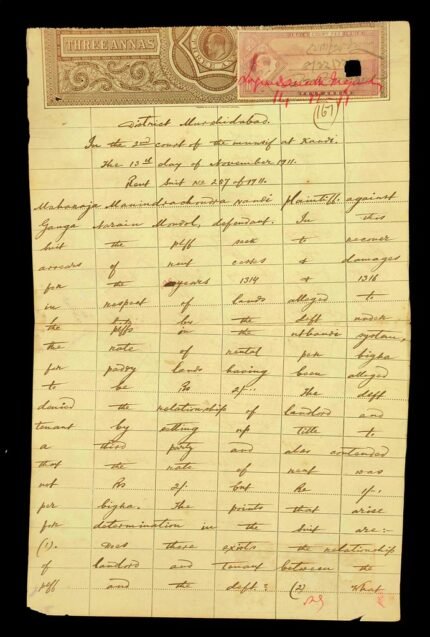 THREE ANNAS
(167)
District Murshidabad.
In the 2nd court of the munsif at Kandi.
The 13th day of November 1911.
Rent suit no 287 of 1911.
Maharaja Manindrachandra Nandi plaintiff. against
Ganga Narain Mondol, defendant. In this
suit the plff seek to recover
arrears of rent cesses & damages
for the years 1314 & 1316
in respect of lands alleged to
be by the deft under
the plffs in the utbandi system,
the rate of rental per bigha
for paddy lands having been alleged
to be Rs 2/-. The deft
denied the relationship of landlord and
tenant by setting up title to
a third party and also contended
that the rate of rent was
not Rs 2/- but Re
per bigha. The points that arise
for determination in the suit are:-
(1). Does there exists the relationship
of landlord and tenant between the
plff and the deft.? (2) What